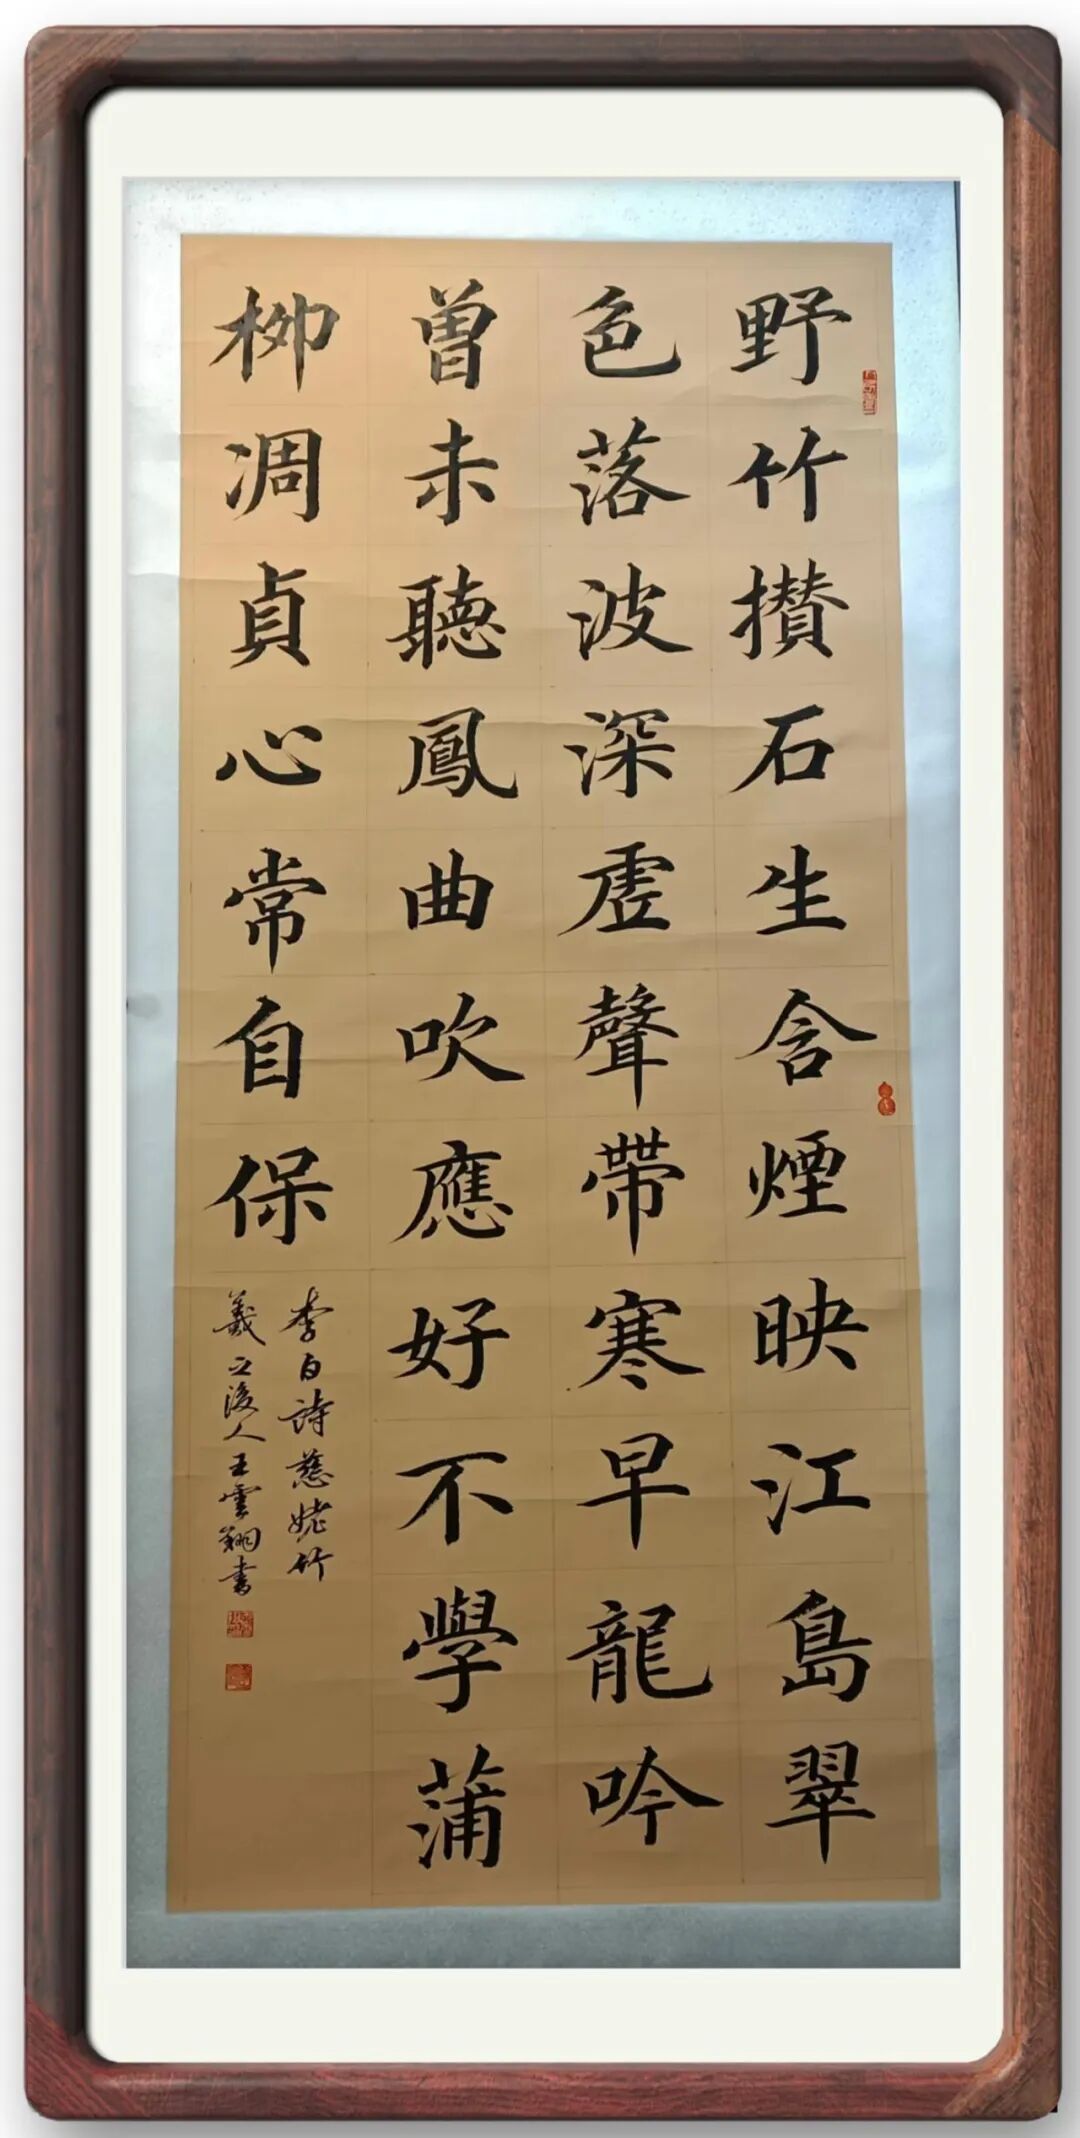 野竹攢石生含煙映江島翠
色落波深虛聲帶寒早龍吟
曾未聽鳳曲吹應好不學蒲
柳凋貞心常自保
李白詩慈姥竹
羲之後人王雲翔書